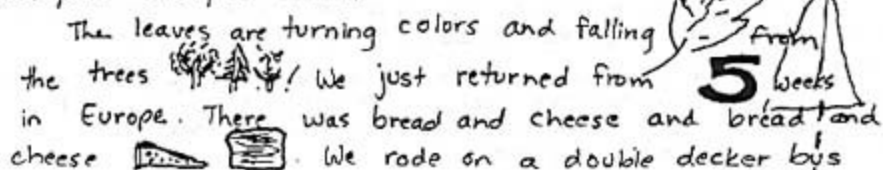 The leaves are turning colors and falling from
the trees ! We just returned from 5 weeks
in Europe. There was bread and cheese and bread and
cheese . We rode on a double decker bus